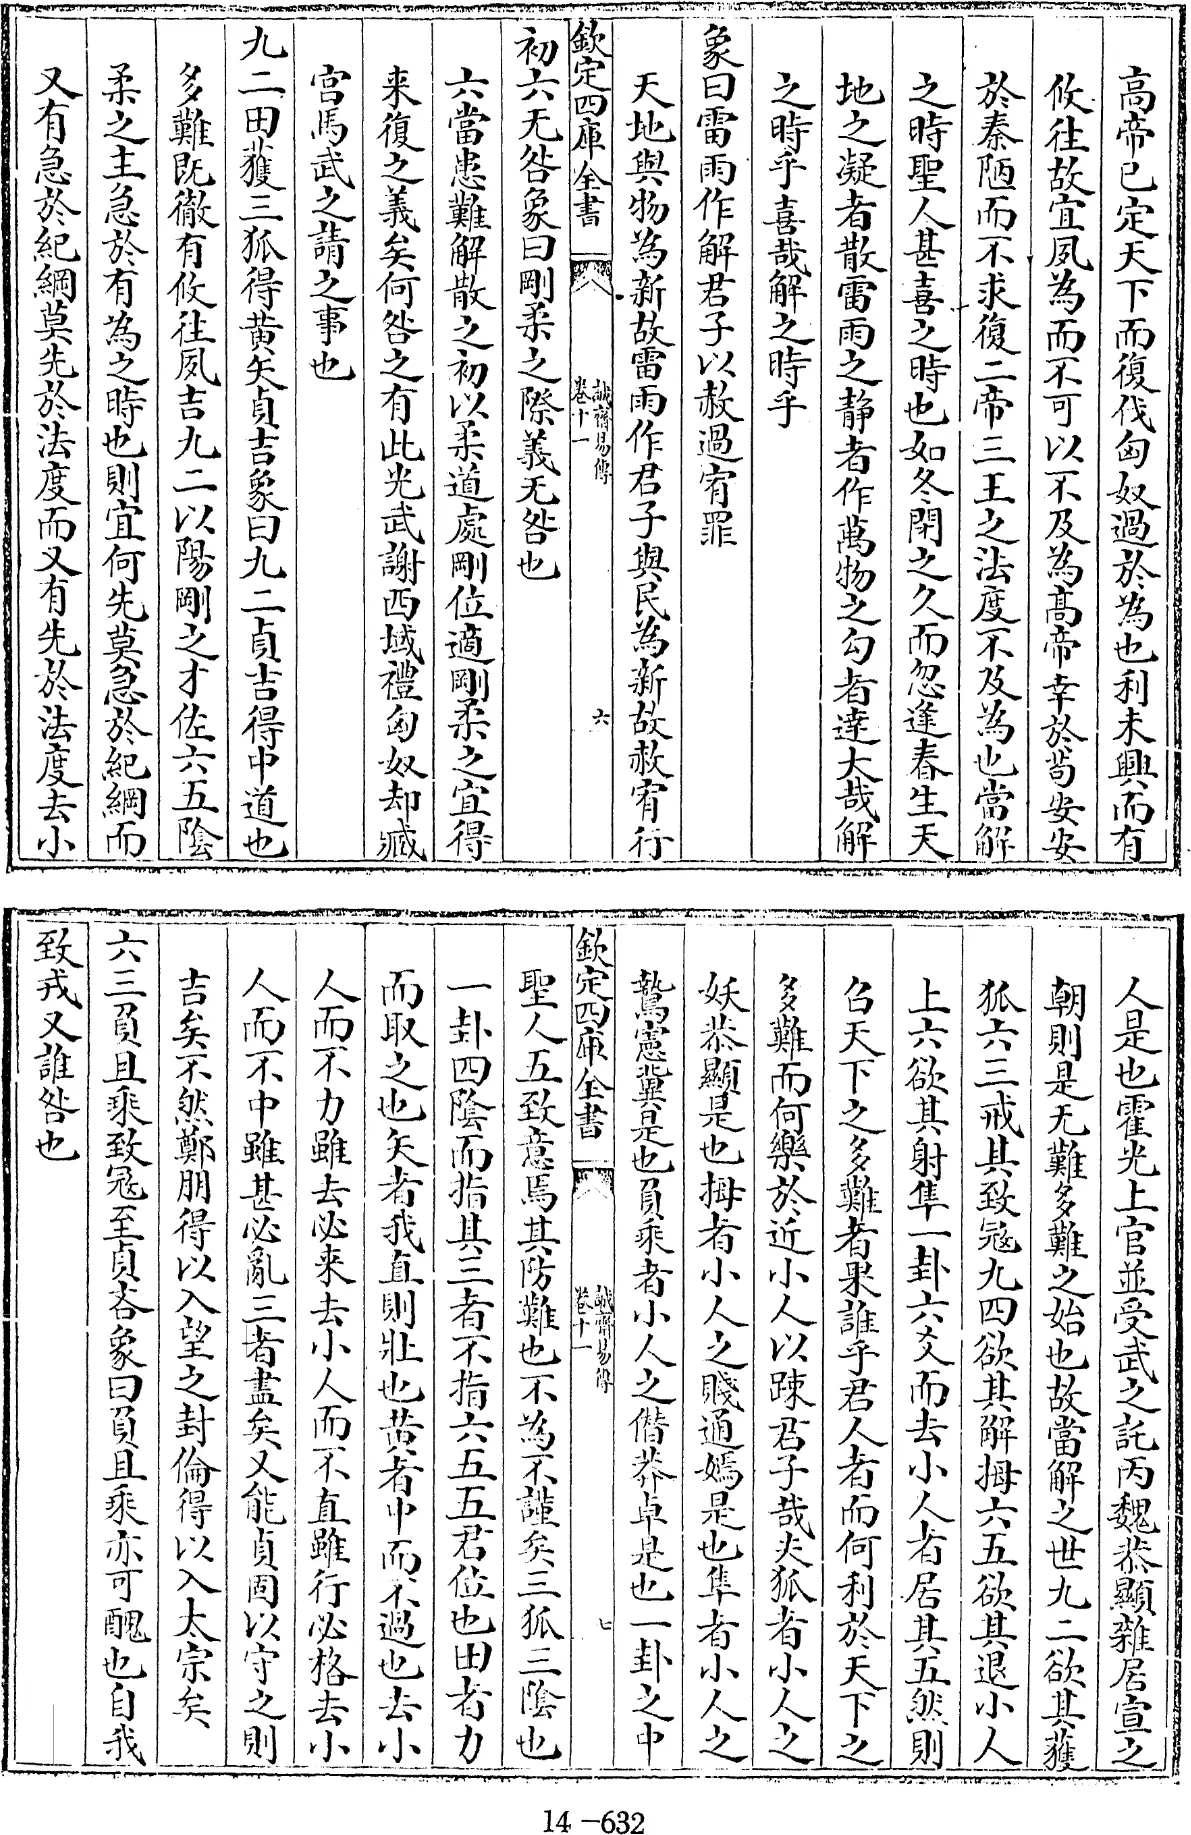 高帝已定天下而復伐匈奴過於為也利未興而有
攸往故宜夙為而不可以不及為高帝幸於苟安安
於秦陋而不求復二帝三王之法度不及為也當解
之時聖人甚喜之時也如冬閉之久而忽逢春生天
地之凝者散雷雨之静者作萬物之勾者達大哉解
之時乎喜哉解之時乎
象曰雷雨作解君子以赦過宥罪
天地與物為新故雷雨作君子與民為新故赦宥行
欽定四庫全書
誠齋易傳
卷十一
六
初六无咎象曰剛柔之際義无咎也
六當患難解散之初以柔道處剛位適剛柔之宜得
来復之義矣何咎之有此光武謝西域禮匈奴却臧
宮馬武之請之事也
九二田獲三狐得黄矢貞吉象曰九二貞吉得中道也
多難既徹有攸往夙吉九二以陽剛之才佐六五陰
柔之主急於有為之時也則宜何先莫急於紀綱而
又有急於紀綱莫先於法度而又有先於法度去小
人是也霍光上官並受武之託丙魏恭顯雜居宣之
朝則是无難多難之始也故當解之世九二欲其獲
狐六三戒其致冦九四欲其解拇六五欲其退小人
上六欲其射隼一卦六爻而去小人者居其五然則
召天下之多難者果誰乎君人者而何利於天下之
多難而何樂於近小人以踈君子哉夫狐者小人之
妖恭顯是也拇者小人之賤通嫣是也隼者小人之
鷙憲冀是也負乘者小人之僭莽卓是也一卦之中
欽定四庫全書
誠齋易傳
卷十一
七
聖人五致意焉其防難也不為不謹矣三狐三陰也
一卦四陰而指其三者不指六五五君位也田者力
而取之也矢者我直則壯也黄者中而不過也去小
人而不力雖去必来去小人而不直雖行必格去小
人而不中雖甚必亂三者盡矣又能貞固以守之則
吉矣不然鄭朋得以入望之封倫得以入太宗矣
六三負且乘致冦至貞吝象曰負且乘亦可醜也自我
致戎又誰咎也
14-632